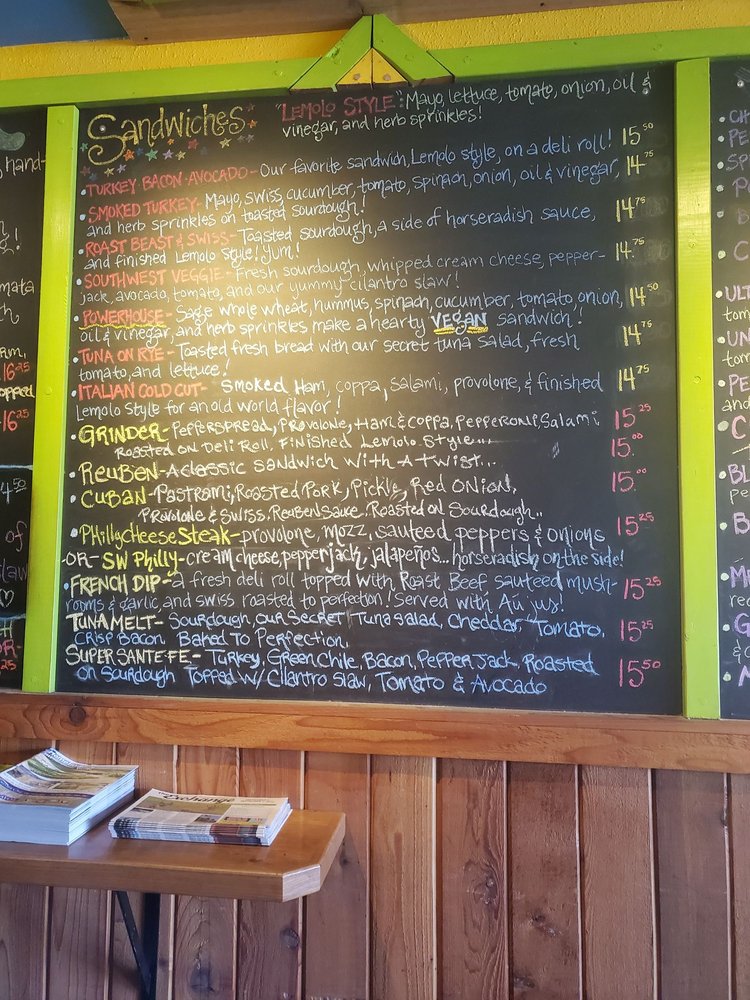 Sandwiches
"LEMOLO STYLE": Mayo, lettuce, tomato, onion, oil &
vinegar, and herb sprinkles!
• TURKEY BACON AVOCADO - Our favorite sandwich, Lemolo style, on a deli roll! 15.50
• SMOKED TURKEY - Mayo, swiss, cucumber, tomato, spinach, onion, oil & vinegar, 14.75
and herb sprinkles on toasted sourdough!
• ROAST BEAST & SWISS - Toasted sourdough, a side of horseradish sauce, 14.75
and finished Lemolo Style! Yum!
• SOUTHWEST VEGGIE - Fresh sourdough, whipped cream cheese, pepper- 14.75
jack, avocado, tomato, and our yummy cilantro slaw!
• POWERHOUSE - Sage whole wheat, hummus, spinach, cucumber, tomato onion, 14.50
oil & vinegar, and herb sprinkles make a hearty VEGAN sandwich!
• TUNA ON RYE - Toasted fresh bread with our secret tuna salad, fresh 14.75
tomato, and lettuce!
• ITALIAN COLD CUT - Smoked Ham, coppa, salami, provolone, & finished 14.75
Lemolo Style for an old world flavor!
• GRINDER - PEPPERSPREAD, PROVOLONE, HAM & COPPA, PEPPERONI, SALAMI 15.25
ROASTED ON DELI ROLL, FINISHED LEMOLO STYLE...
• REUBEN - A CLASSIC SANDWICH WITH A TWIST... 15.00
• CUBAN - PASTRAMI, ROASTED PORK, PICKLE, RED ONION, 15.00
PROVOLONE & SWISS. REUBEN SAUCE. ROASTED ON SOURDOUGH..
• PHILLY CHEESE STEAK - provolone, mozz, sauteed peppers & onions 15.25
-OR- SW PHILLY - cream cheese, pepperjack, jalapeños... horseradish on the side!
• FRENCH DIP - a fresh deli roll topped with Roast Beef sauteed mush- 15.25
rooms & garlic, and swiss roasted to perfection! Served with Au jus!
TUNA MELT - SOURDOUGH, OUR SECRET TUNA SALAD, CHEDDAR, TOMATO, 15.25
CRISP BACON. BAKED TO PERFECTION.
SUPER SANTE-FE - TURKEY, GREEN CHILE, BACON, PEPPER JACK, ROASTED 15.50
ON SOURDOUGH TOPPED W/ CILANTRO SLAW, TOMATO & AVOCADO
Exchange